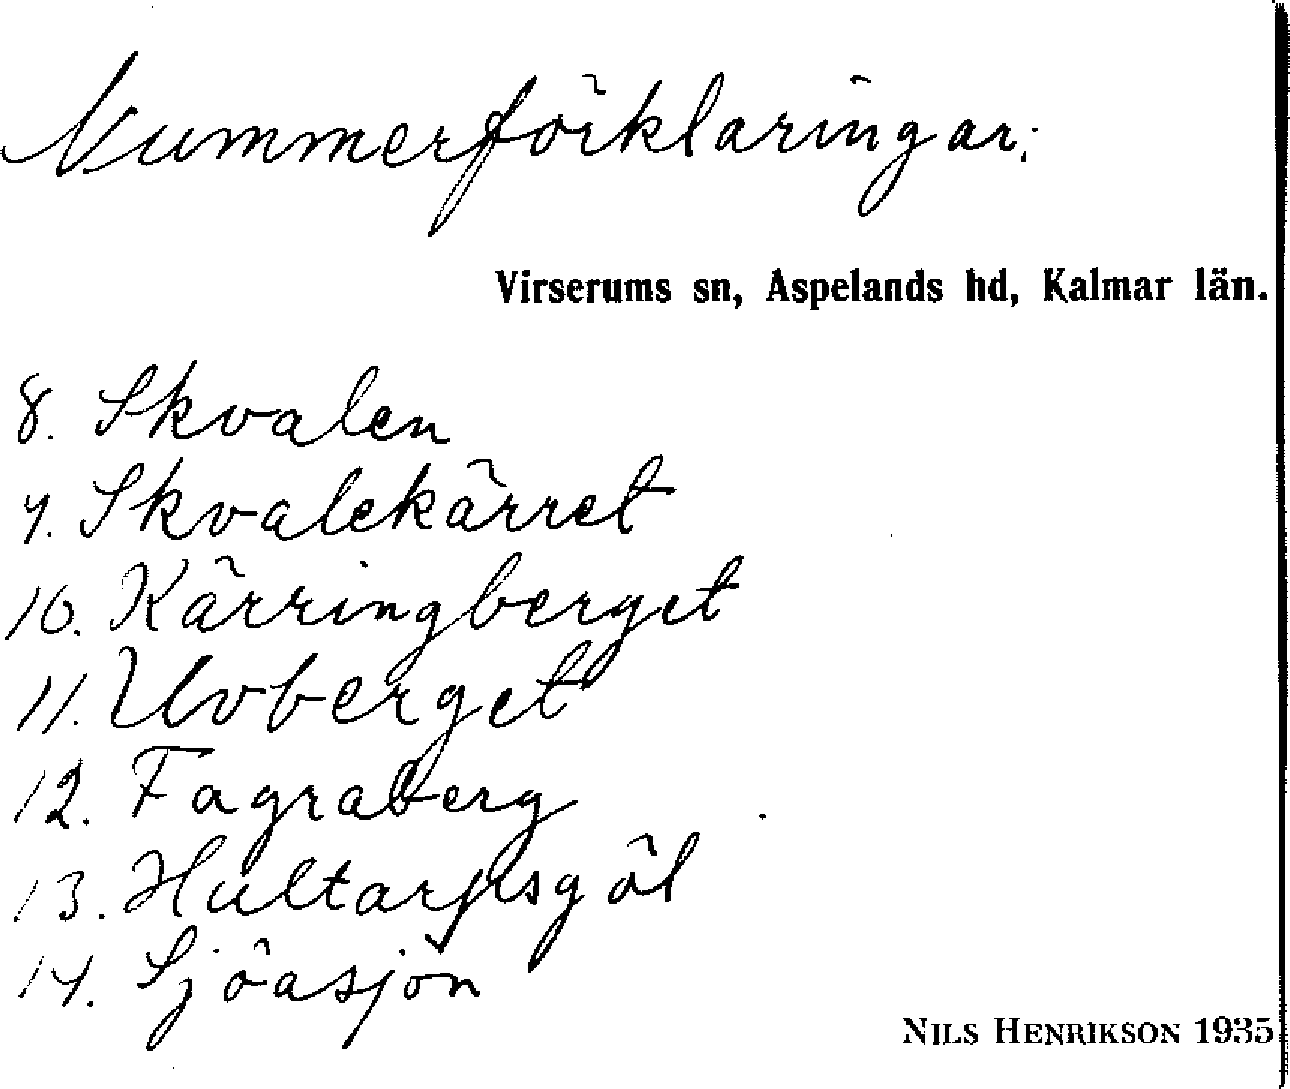 Nummerförklaringar:
Virserums sn, Aspelands hd, Kalmar län.
8. Skvalen
9. Skvalekärret
10. Kärringberget
11. Uvberget
12. Fagraberg
13. Hultarpsgöl
14. Sjöasjön
NILS HENRIKSON 1935